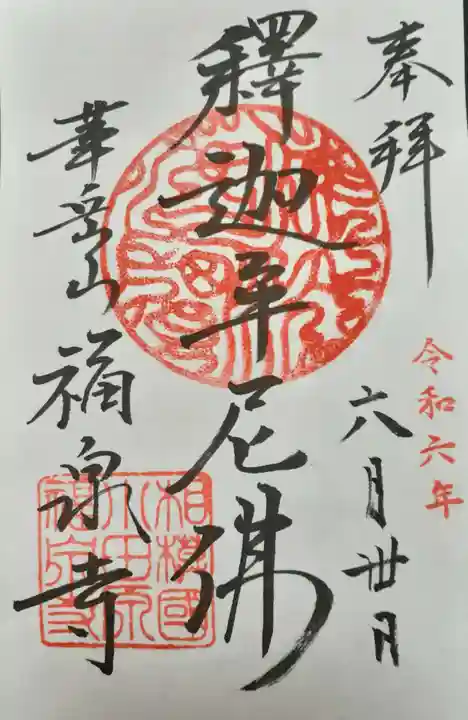 奉拝
令和六年
六月卅日
釋迦牟尼佛
華岳山 福泉寺
相模國
小田原
福泉寺